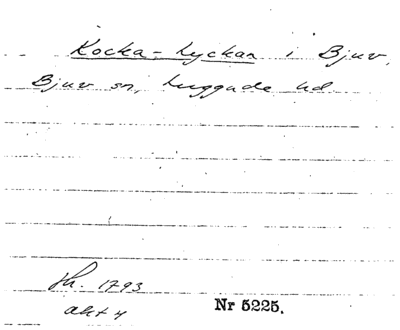 Kocka-Lyckan i Bjuv,
Bjuv sn, Luggude hd
Sh. 1793
akt 4
Nr 5225.